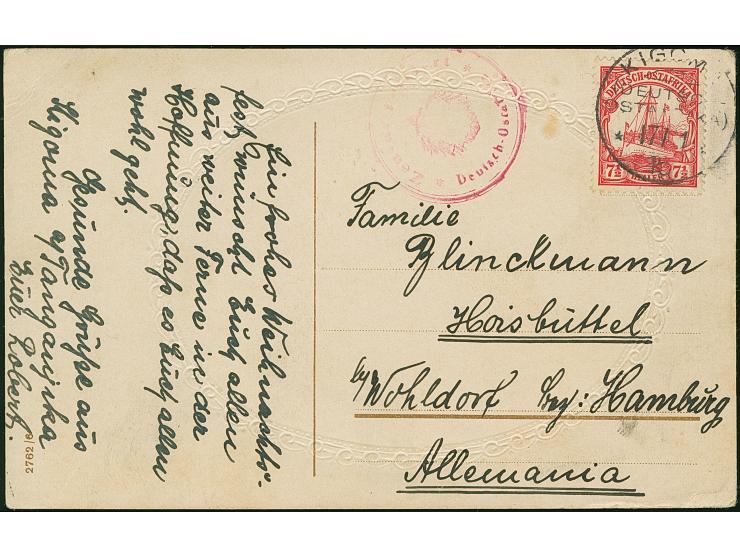 Ein frohes Weihnachts-
fest, wünscht Euch allen
aus weiter Ferne in der
Hoffnung, dass es Euch allen
wohl geht.
Gesunde Grüsse aus
Kigoma a/Tanganjika
Euer Robert.
2762/6
Deutsch-Ostaf
KIGOM
DEUTSCH-OSTAFRIKA
7½ HELLER 7½
Familie
Blinckmann
Hoisbüttel
by/Wohldorf bez: Hamburg
Allemania